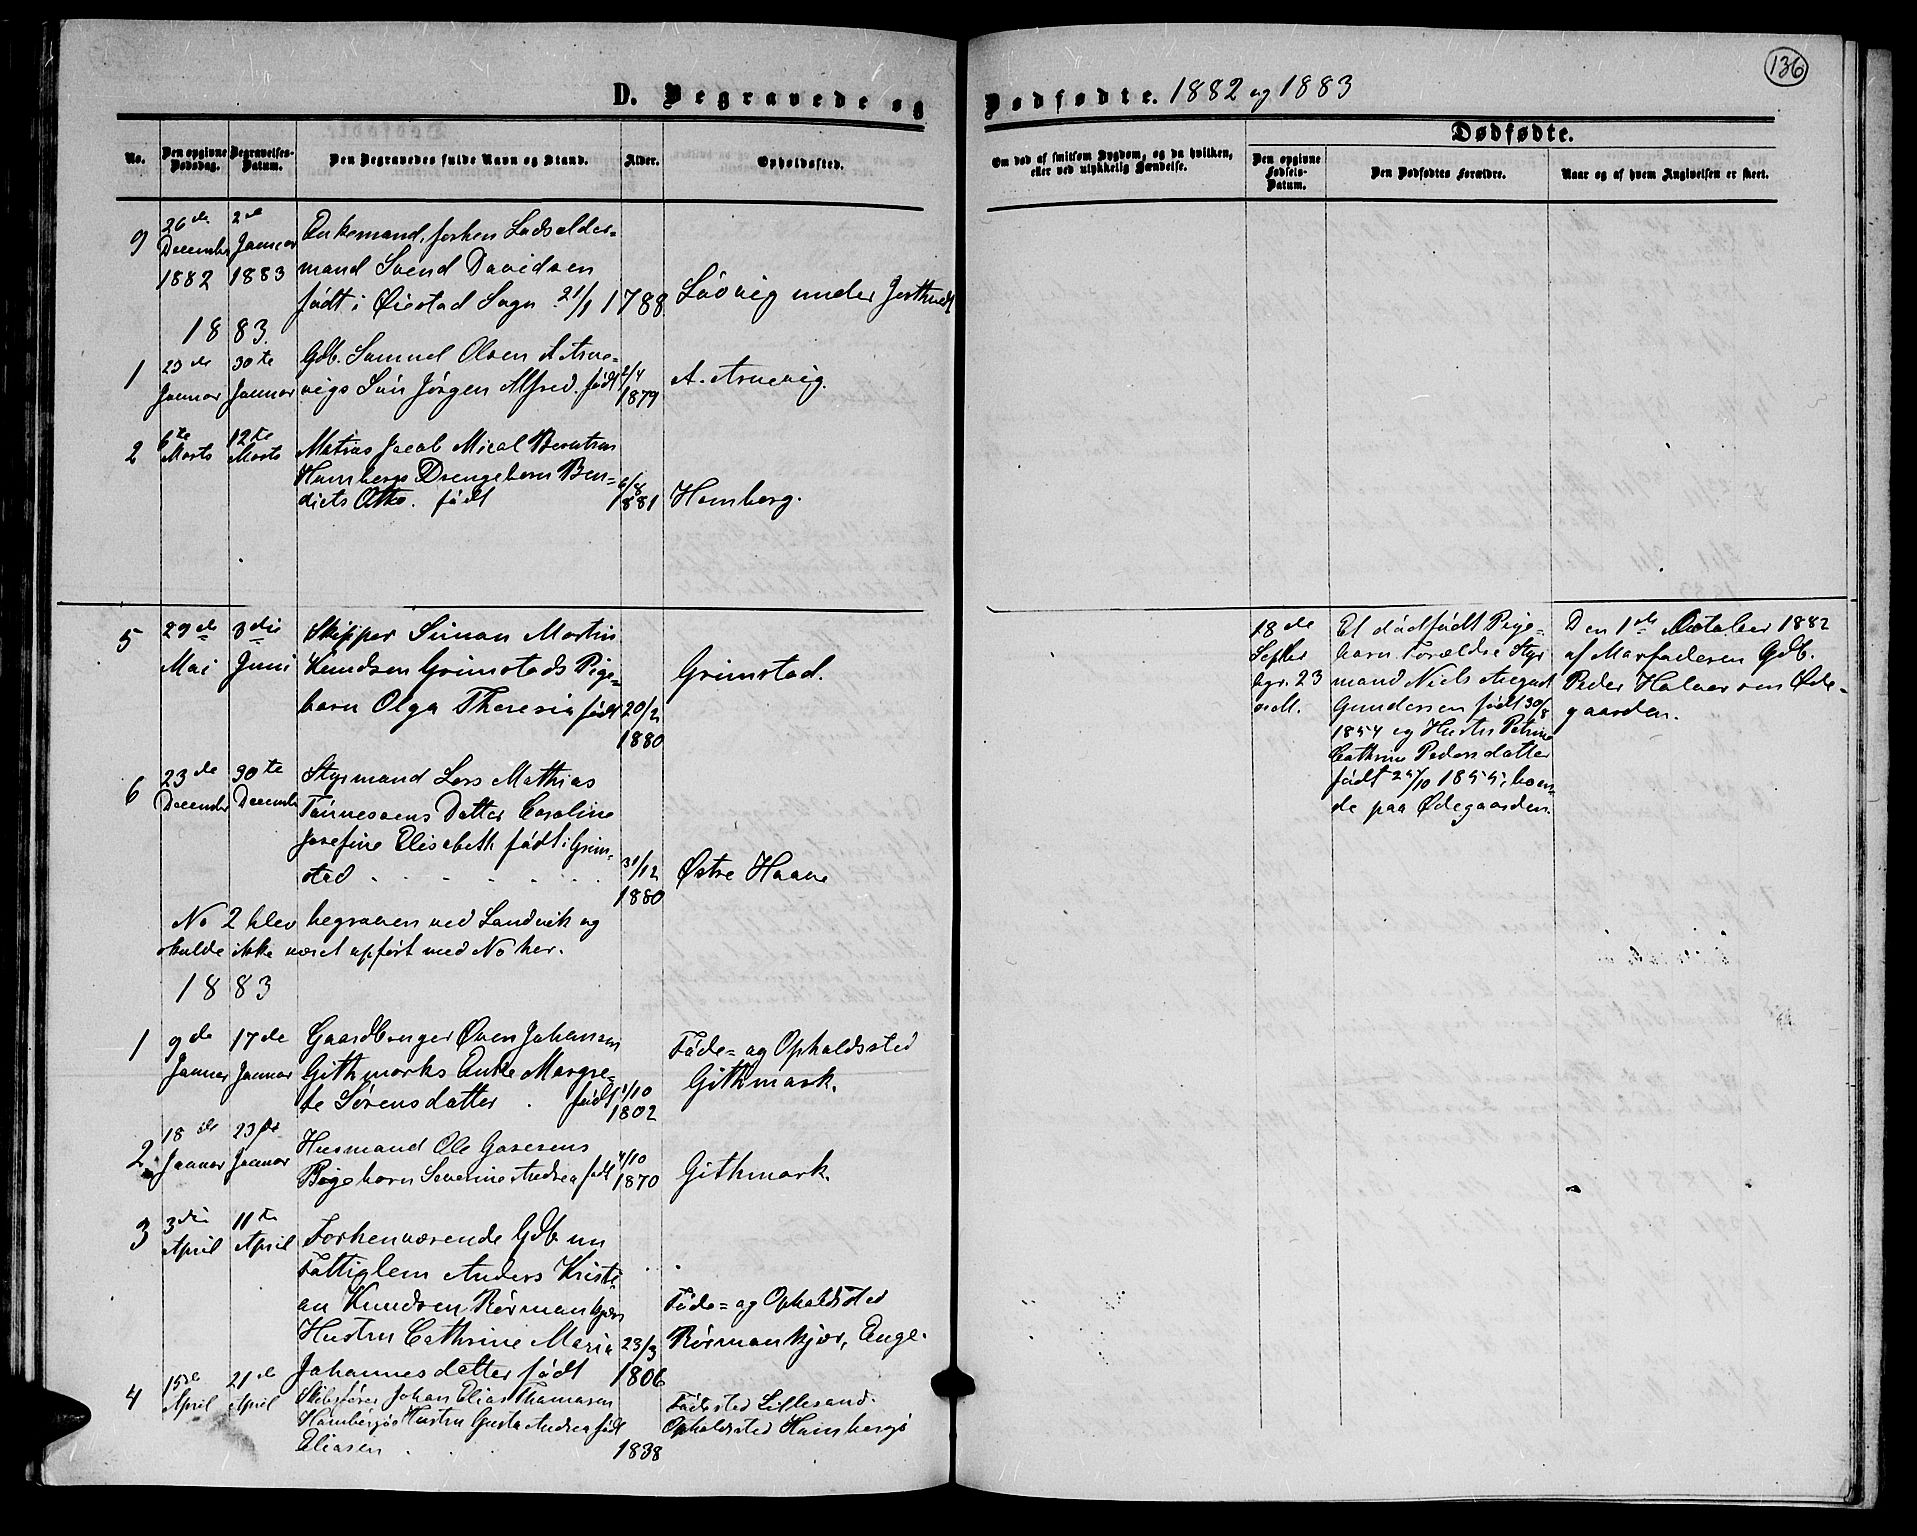 136
D. Begravede og Dødfødte. 1882 og 1883
No.
Den opgivne Dødsdag.
Begravelses-Datum.
Den Begravedes fulde Navn og Stand.
Alder.
Opholdssted.
Om død af smitsom Sygdom, og da hvilken,
eller ved ulykkelig Hændelse.
Dødfødte.
Den opgivne Fødsels-Datum.
Den Dødfødtes Forældre.
Naar og af hvem Angivelsen er skeet.
9
26de December 1882
2de Januar 1883
Enkemand, forhen Lodsolder-
mand Svend Davidsen
født i Øiestad Sogn 21/1 1788
Løvvig under
1883.
1
23de Januar
30te Januar
Gdb. Samuel Olsen A. Arne-
vigs Søn Jørgen Alfred. født 2/4 1879
A. Arnevig.
2
6te Marts
12te Marts
Matias Jacob Mical
Hombergs Drengebarn Ben-
diets Otto. født 6/8 1881
Homberg.
5
29de Mai
3die Juni
Skipper Simon Martin
Knudsen Grimstads Pige-
barn Olga Theresia født 20/2 1880
Grimstad.
6
23de December
30te December
Styrmand Lars Mathias
Tønnesens Datter Caroline
Josefine Elisabeth født i Grim-
stad 31/12 1880
Østre Haave
No 2 blev begraven ved Landvik og
skulde ikke været opført med No her.
1883
1
9de Januar
17de Januar
Gaardbruger Øven Johansen
Githmarks Enke Margre-
te Sørensdatter. født /10 1802
Føde= og Opholdssted
Githmark.
2
18de Januar
23de Januar
Husmand Ole Gasesens
Pigebarn Severine Andrea født 4/10 1870
Githmark.
3
3die April
11te April
Forhenværende Gdb. nu
Fattiglem Anders Kristi-
an Knudsen Rørmankjær
Hustru Cathrine Maria
Johannesdatter født 23/3 1806
Føde= og Opholdsted
Rørmankjær, Enge.
4
15de April
21de April
Skibsfører Johan Elias Thomasen
Hombergs Hustru Gusta Andrea født
Eliasen 1838
Fødested Lillesand.
Opholdsted Hombersø
18de
Septbr
bgr. 23
Et dødfødt Pige-
barn. Forældre Styr
mand Niels August
Gundersen født 30/8
1854 og Hustru Petrine
Cathrine Pedersdatter
født 24/10 1855, boen-
de paa Ødegaarden.
Den 1de October 1882
af Morfaderen Gdb.
Peder Halvorsen Øde-
gaarden.